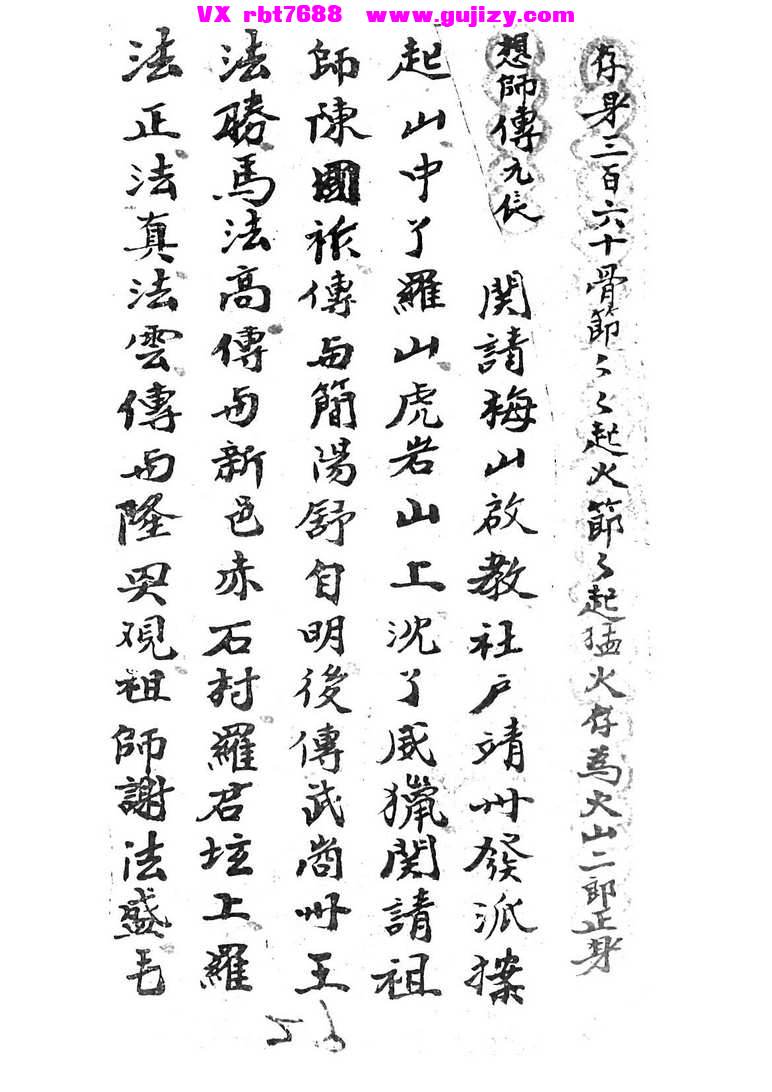 VX rbt7688 www.gujizy.com
存身三百六十骨節々々起火節々起猛火存為火山二郎正身
想師傳九長
関請梅山啟教社户靖州發派
起山中了羅山虎岩山上沈了威獵関請祖
師陳國傳与簡陽舒自明後傳武崗州王
法勝馬法高傳与新邑赤石村羅君坛上羅
法正法真法雲傳与隆兴观祖師謝法盛毛